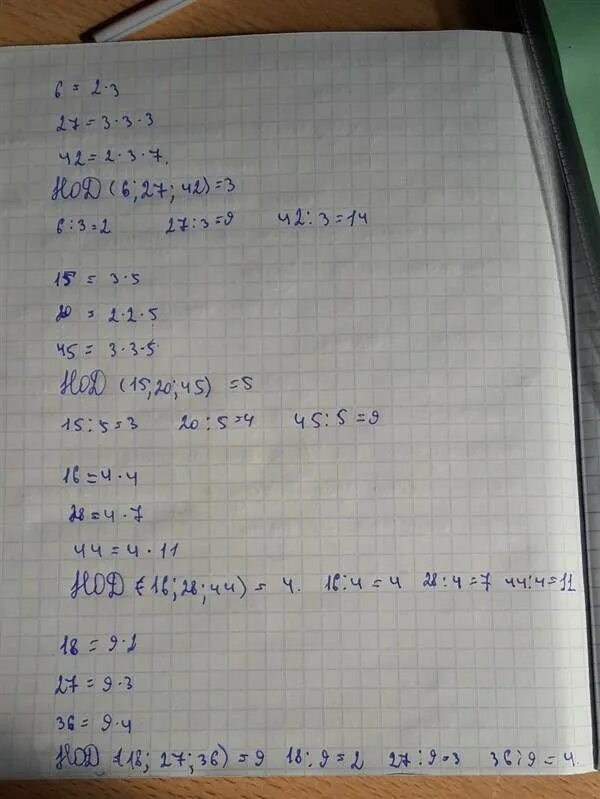 6 = 2·3
27 = 3·3·3
42 = 2·3·7.
НОД (6; 27; 42) = 3
6:3=2 27:3=9 42:3=14
15 = 3·5
20 = 2·2·5
45 = 3·3·5
НОД (15; 20; 45) = 5
15:5=3 20:5=4 45:5=9
16 = 4·4
28 = 4·7
44 = 4·11
НОД (16; 28; 44) = 4. 16:4=4 28:4=7 44:4=11
18 = 9·2
27 = 9·3
36 = 9·4
НОД (18; 27; 36) = 9 18:9=2 27:9=3 36:9=4.